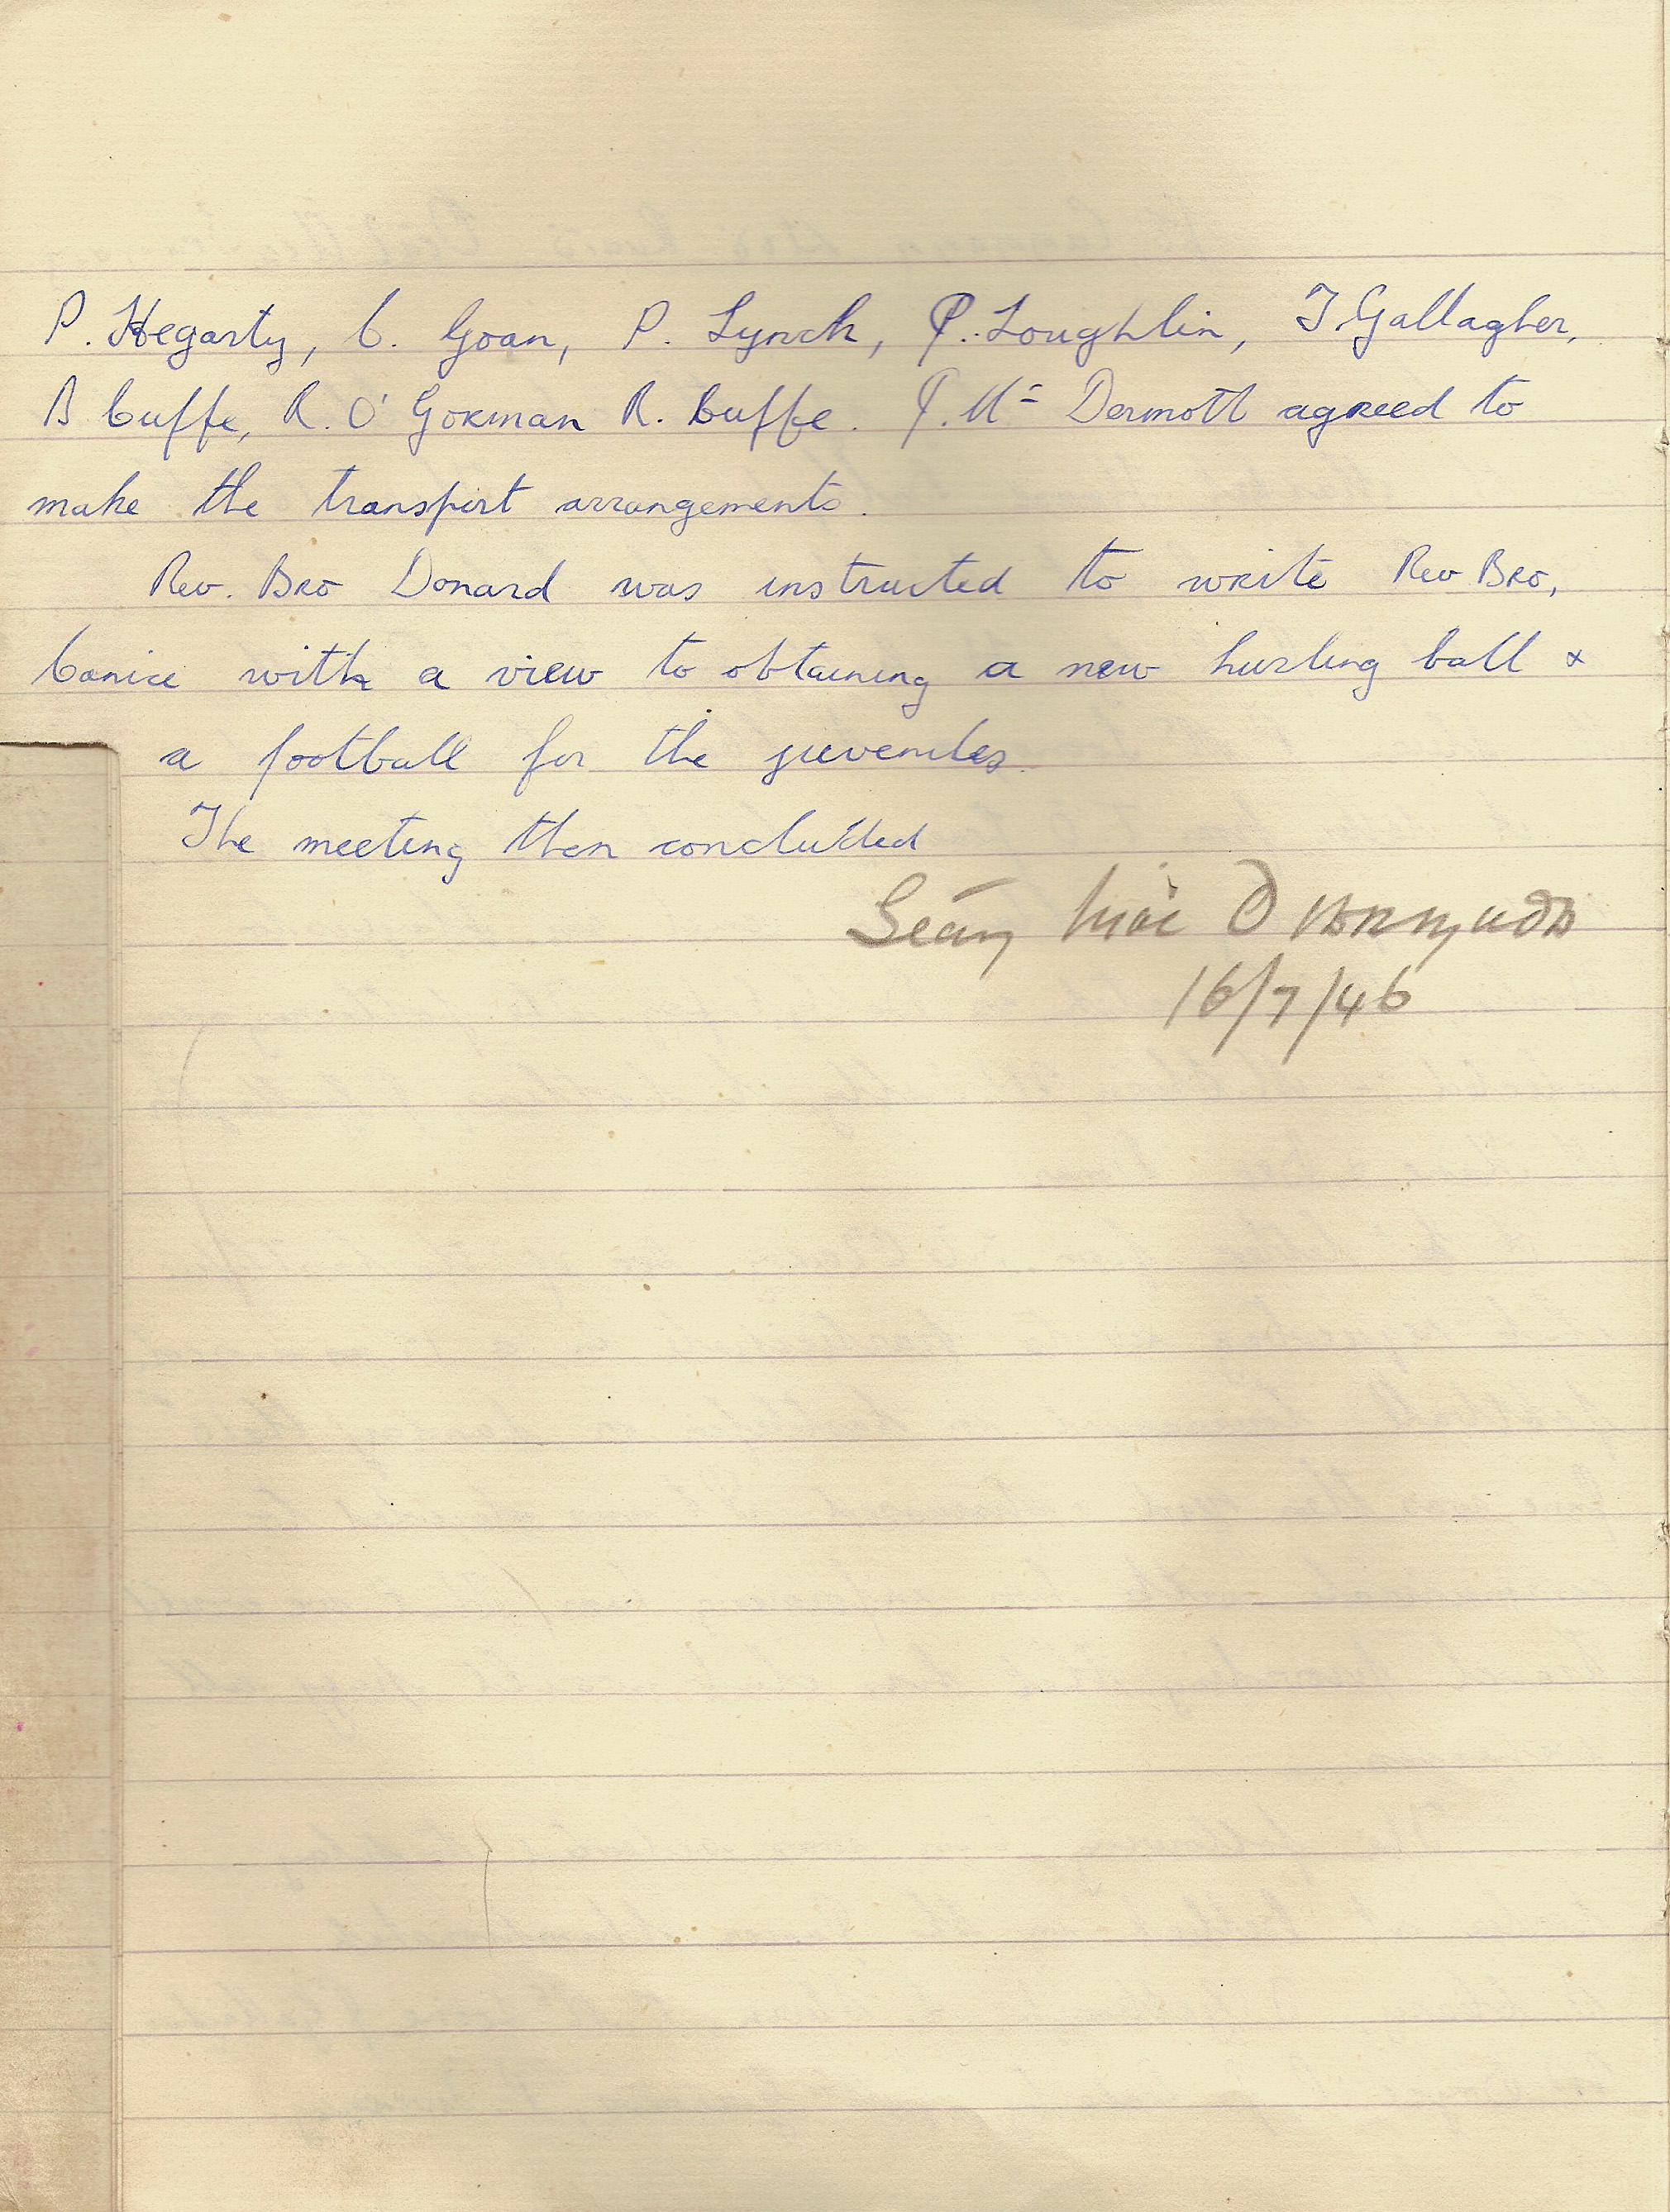 P. Hegarty, C. Goan, P. Lynch, P. Loughlin, T. Gallagher,
B Cuffe, R. O' Gorman R. Cuffe. P. Mc Dermott agreed to
make the transport arrangements.
Rev. Bro Donard was instructed to write Rev Bro,
Canice with a view to obtaining a new hurling ball &
a football for the juveniles.
The meeting then concluded
Seán Mac
16/7/46